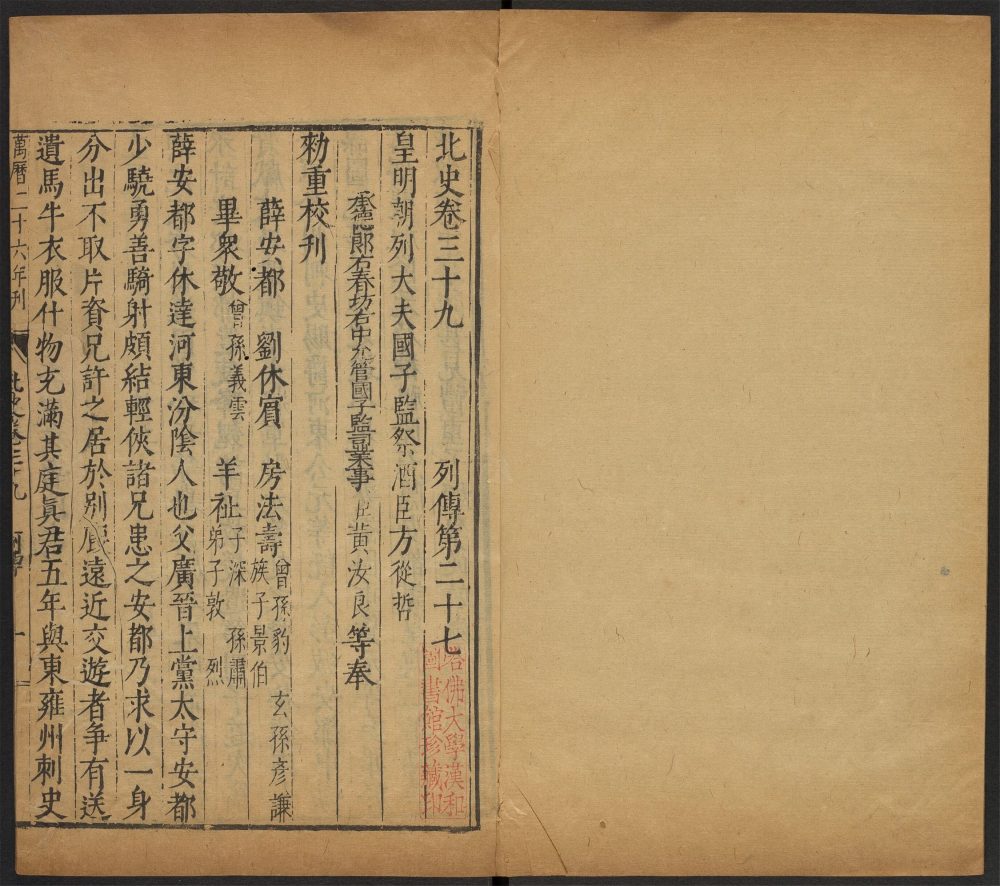 北史卷三十九 列傳第二十七
皇明朝列大夫國子監祭酒臣方從哲
承德郎右春坊右中允管國子監司業事臣黃汝良等奉
勑重校刊
薛安都 劉休賓 房法壽 曾孫豹 玄孫彥謙 族子景伯
畢衆敬 曾孫義雲 羊祉 子深 孫肅 弟子敦 烈
薛安都字休達河東汾陰人也父廣晉上黨太守安都
少驍勇善騎射頗結輕俠諸兄患之安都乃求以一身
分出不取片資兄許之居於別廐遠近交遊者爭有送
遺馬牛衣服什物充滿其庭眞君五年與東雍州刺史
萬曆二十六年刊 北史卷三十九 列傳 一
哈佛大學漢和
圖書館珍藏印